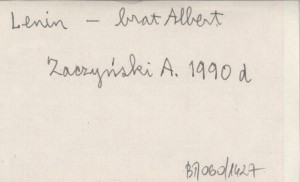 Lenin – brat Albert
Zaczyński A. 1990 d
BJ/060/1427